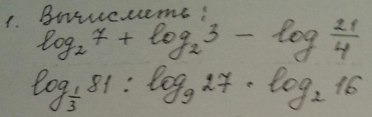 1. Вычислить:
log₂7 + log₂3 − log 21/4
log_{1/3} 81 : log₉27 · log₂16